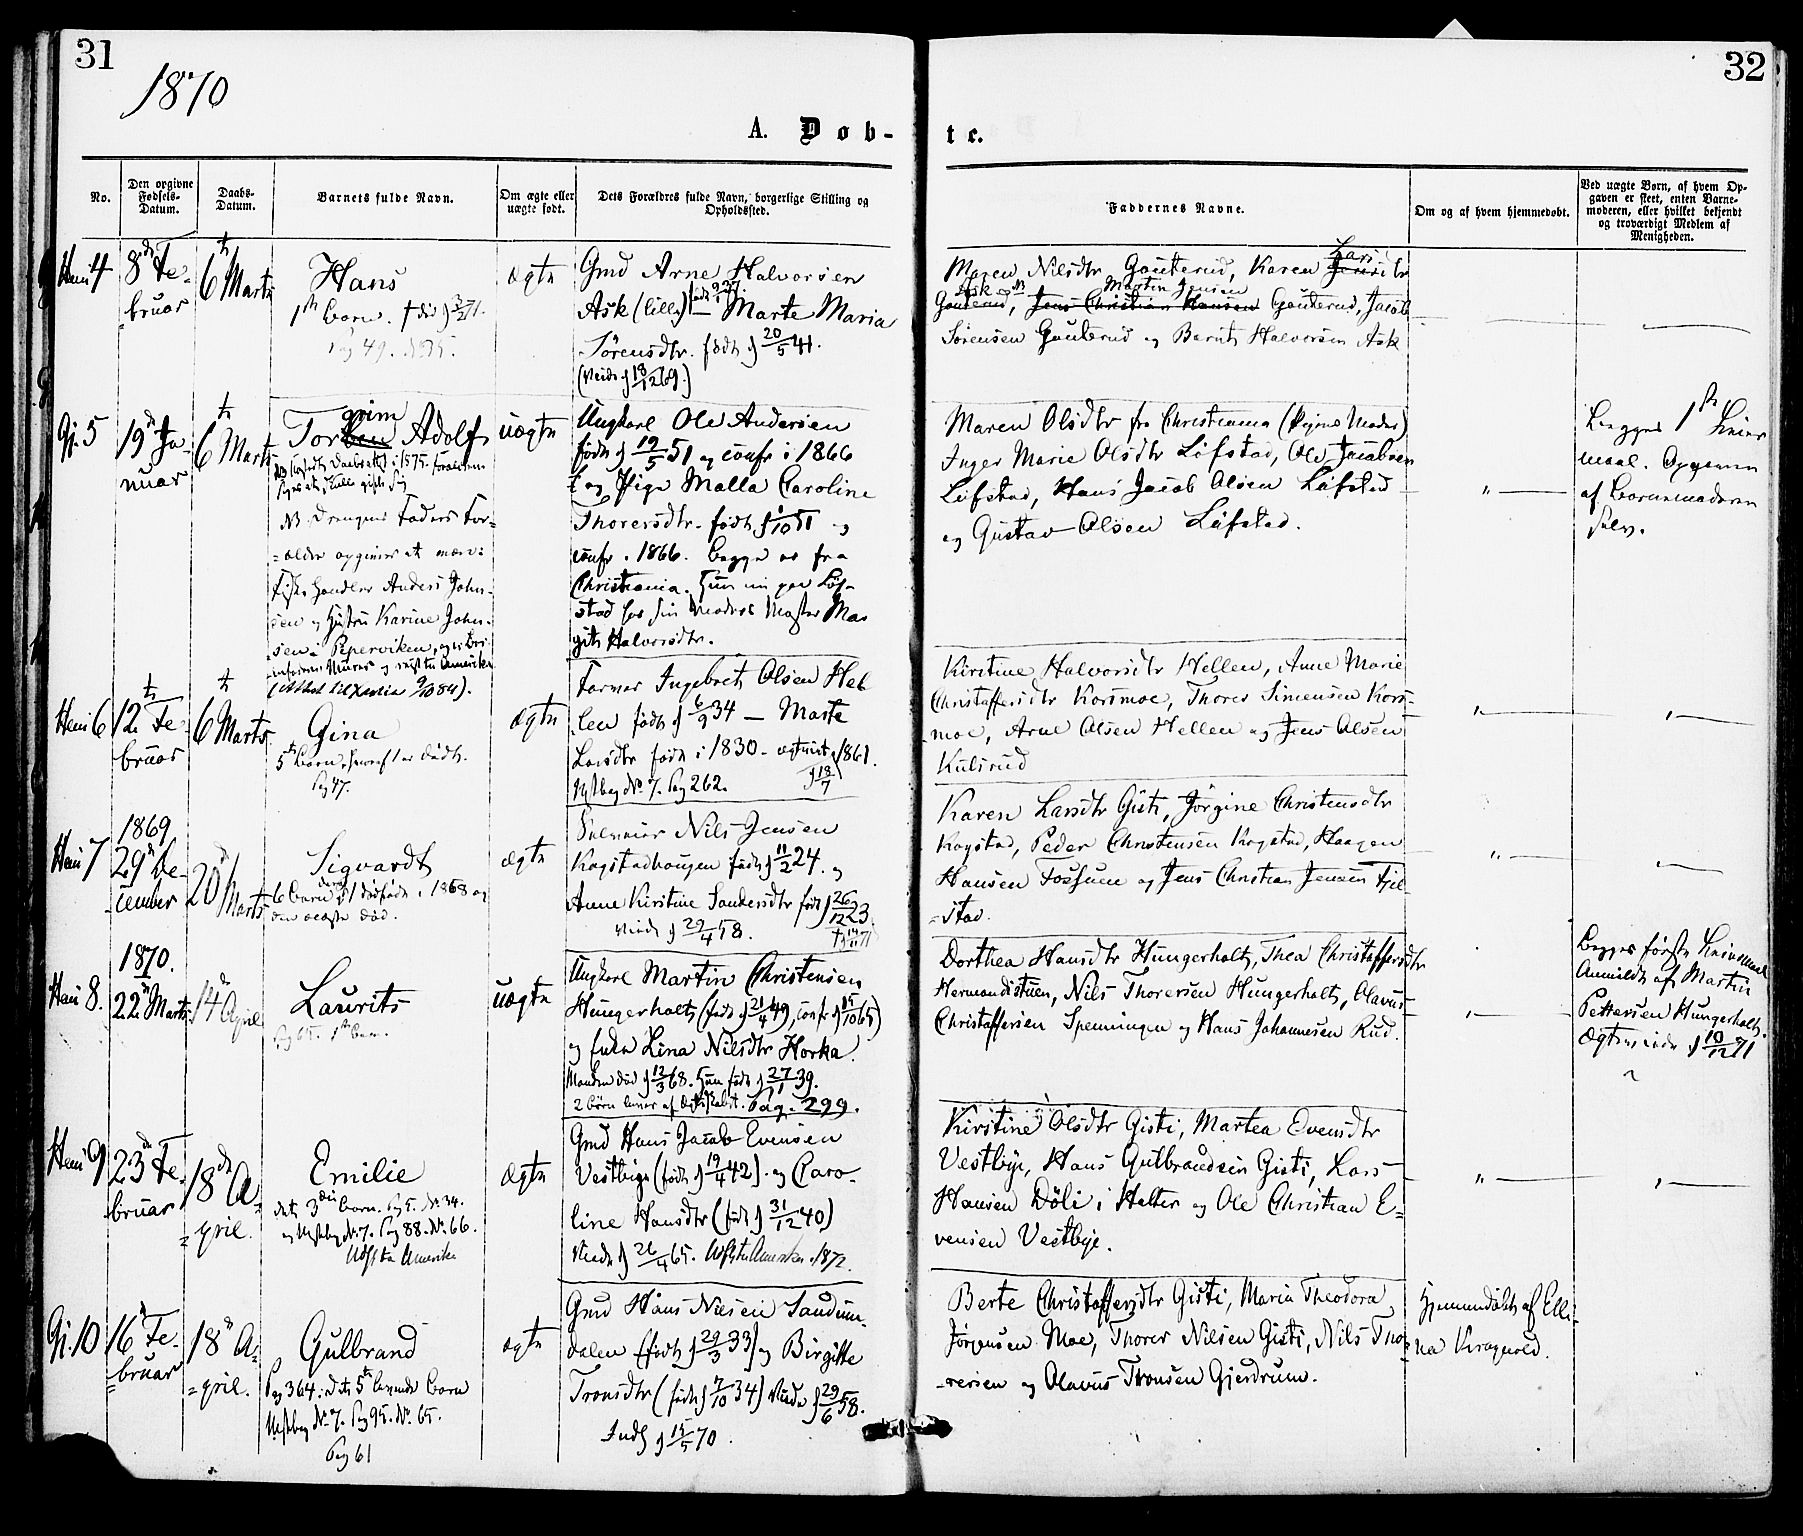 31
32
1870
A. Døb-
te.
No.
Den opgivne
Fødsels-
Datum.
Daabs-
Datum.
Barnets fulde Navn.
Om ægte eller
uægte født.
Dets Forældres fulde Navn, borgerlige Stilling og
Opholdssted.
Faddernes Navne.
Om og af hvem hjemmedøbt.
Ved uægte Børn, af hvem Op-
gaven er skeet, enten Barne-
moderen, eller hvilket bekjendt
og troværdigt Medlem af
Menigheden.
4
8de Fe-
bruar
6te Marts
Hans
1ste Barn. død
Pag 49.
ægte
Gmd Arne Halvorsen
Ask (lille) — Marte Maria
Sörensdtr. født d 20/5 41.
(viede d 18/12 69.)
Lars
Maren Nilsdtr Gouterud, Karen Jensdtr
Ask Martin Jensen
Gouterud, Jens Christian Hansen Gouterud, Jacob
Sörensen Gouterud og Bernt Halvorsen Ask
Gj. 5
19de Ja-
nuar
6te Marts
grim
Torben Adolf
NB Drengens Faders For-
ældre opgives at være:
Handler Anders John-
sen og Hustru Karine John-
sen i Pipervigen,
uægte
Ungkarl Ole Andersen
født d 19/5 51 og confr i 1866
og Pige Malla Caroline
Thorersdtr. født d 1/10 51 og
confr. 1866. begge er fra
Christiania. Hun nu paa Löf-
stad hos sin Moders Moster Mar
git Halvorsdtr.
Maren Olsdtr fra Christiania (Pigens Moder)
Inger Marie Olsdtr Löfstad, Ole Jacobsen
Löfstad, Hans Jacob Olsen Löfstad
og Gustav Olsen Löfstad.
Begges 1ste Leier
maal. Opgiven
af Barnemoderen
selv.
6
12te Fe-
bruar
6te Marts
Gina
5te Barn, hvoraf 1 er dødt.
Pag 47.
ægte
Farmer Ingebret Olsen Hel
len født d 6/9 34 — Marte
Larsdtr født i 1830 — ægteviet 1861.
No 7. Pag 262.
Kirstine Halvorsdtr Hellen, Anne Marie
Christoffersdtr Korsmoe, Thorer Simensen Kors-
moe, Arne Olsen Hellen og Jens Olsen
Kulsrud
7
1869
29de De-
cember
20de Marts
Sigvardt
6 Barn 1 dødfødt i 1868 og
død.
ægte
Nils Jensen
Kogstadhaugen født d 11/2 24. og
Anne Kirstine Sandersdtr født d 26/12 23
viede d 29/4 58.
Karen Larsdtr Gisti, Jörgine Christensdtr
Kogstad, Peder Christensen Kogstad, Haagen
Hansen Fossum og Jens Christian Jensen Fjel
stad.
8.
1870.
22de Marts
14de April
Laurits
Pag 65. 1ste Barn.
uægte
Ungkarl Martin Christensen
Hungerholt (født d 21/4 49, confr d 15/10 65)
og Enke Lina Nilsdtr Horka.
Manden død d 12/3 68. Hun født d 27/1 39.
2 Børn Pag. 299.
Dorthea Hansdtr Hungerholt, Thea Christoffersdtr
Hermandstuen, Nils Thorersen Hungerholt, Olavus
Christoffersen Spenningen og Hans Johannesen Rud.
Begges første Leiermaal
Anmeldt af Martin
Pettersen Hungerholt.
Ægteviede d 10/12 71
9
23de Fe-
bruar
18de A-
pril.
Emilie
dets 3die Barn. Pag 5. No 34.
og No 7. Pag 88. No 66.
Amerika
ægte
Gmd Hans Jacob Evensen
Vestbye (født d 19/4 42) og Caro-
line Hansdtr (født d 31/12 40)
viede d 26/4 65. Amerika 1872.
Kirstine Olsdtr Gisti, Martea Evensdtr
Vestbye, Hans Gulbrandsen Gisti, Lars
Hansen Döli i Holter og Ole Christian E-
vensen Vestbye.
Gj. 10
16de Fe-
bruar
18de A-
pril.
Gulbrand
Pag 364: dets 5te levende Barn
No 7. Pag 95. No 65.
Pag 61
ægte
Gmd Hans Nilsen Sandum-
dalen (født d 29/3 33) og Birgitte
Tronsdtr (født d 7/10 34) viede d 29/6 58.
Inds d 15/5 70.
Berte Christoffersdtr Gisti, Maria Theodora
Jørgensen Moe, Thorer Nilsen Gisti, Nils Tho-
rersen og Olavus Tronsen Gjerdrum.
Hjemmedøbt af Elli-
na Kragvold.